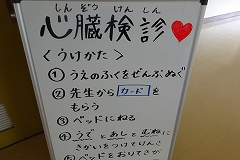 しんぞう けんしん
心臓検診
<うけかた>
①うえのふくをぜんぶぬぐ
②先生からカードを
もらう
③ベッドにねる
④うでとあしとむねに
きかいをつけてけんさ
⑤ベッドをおりてさが